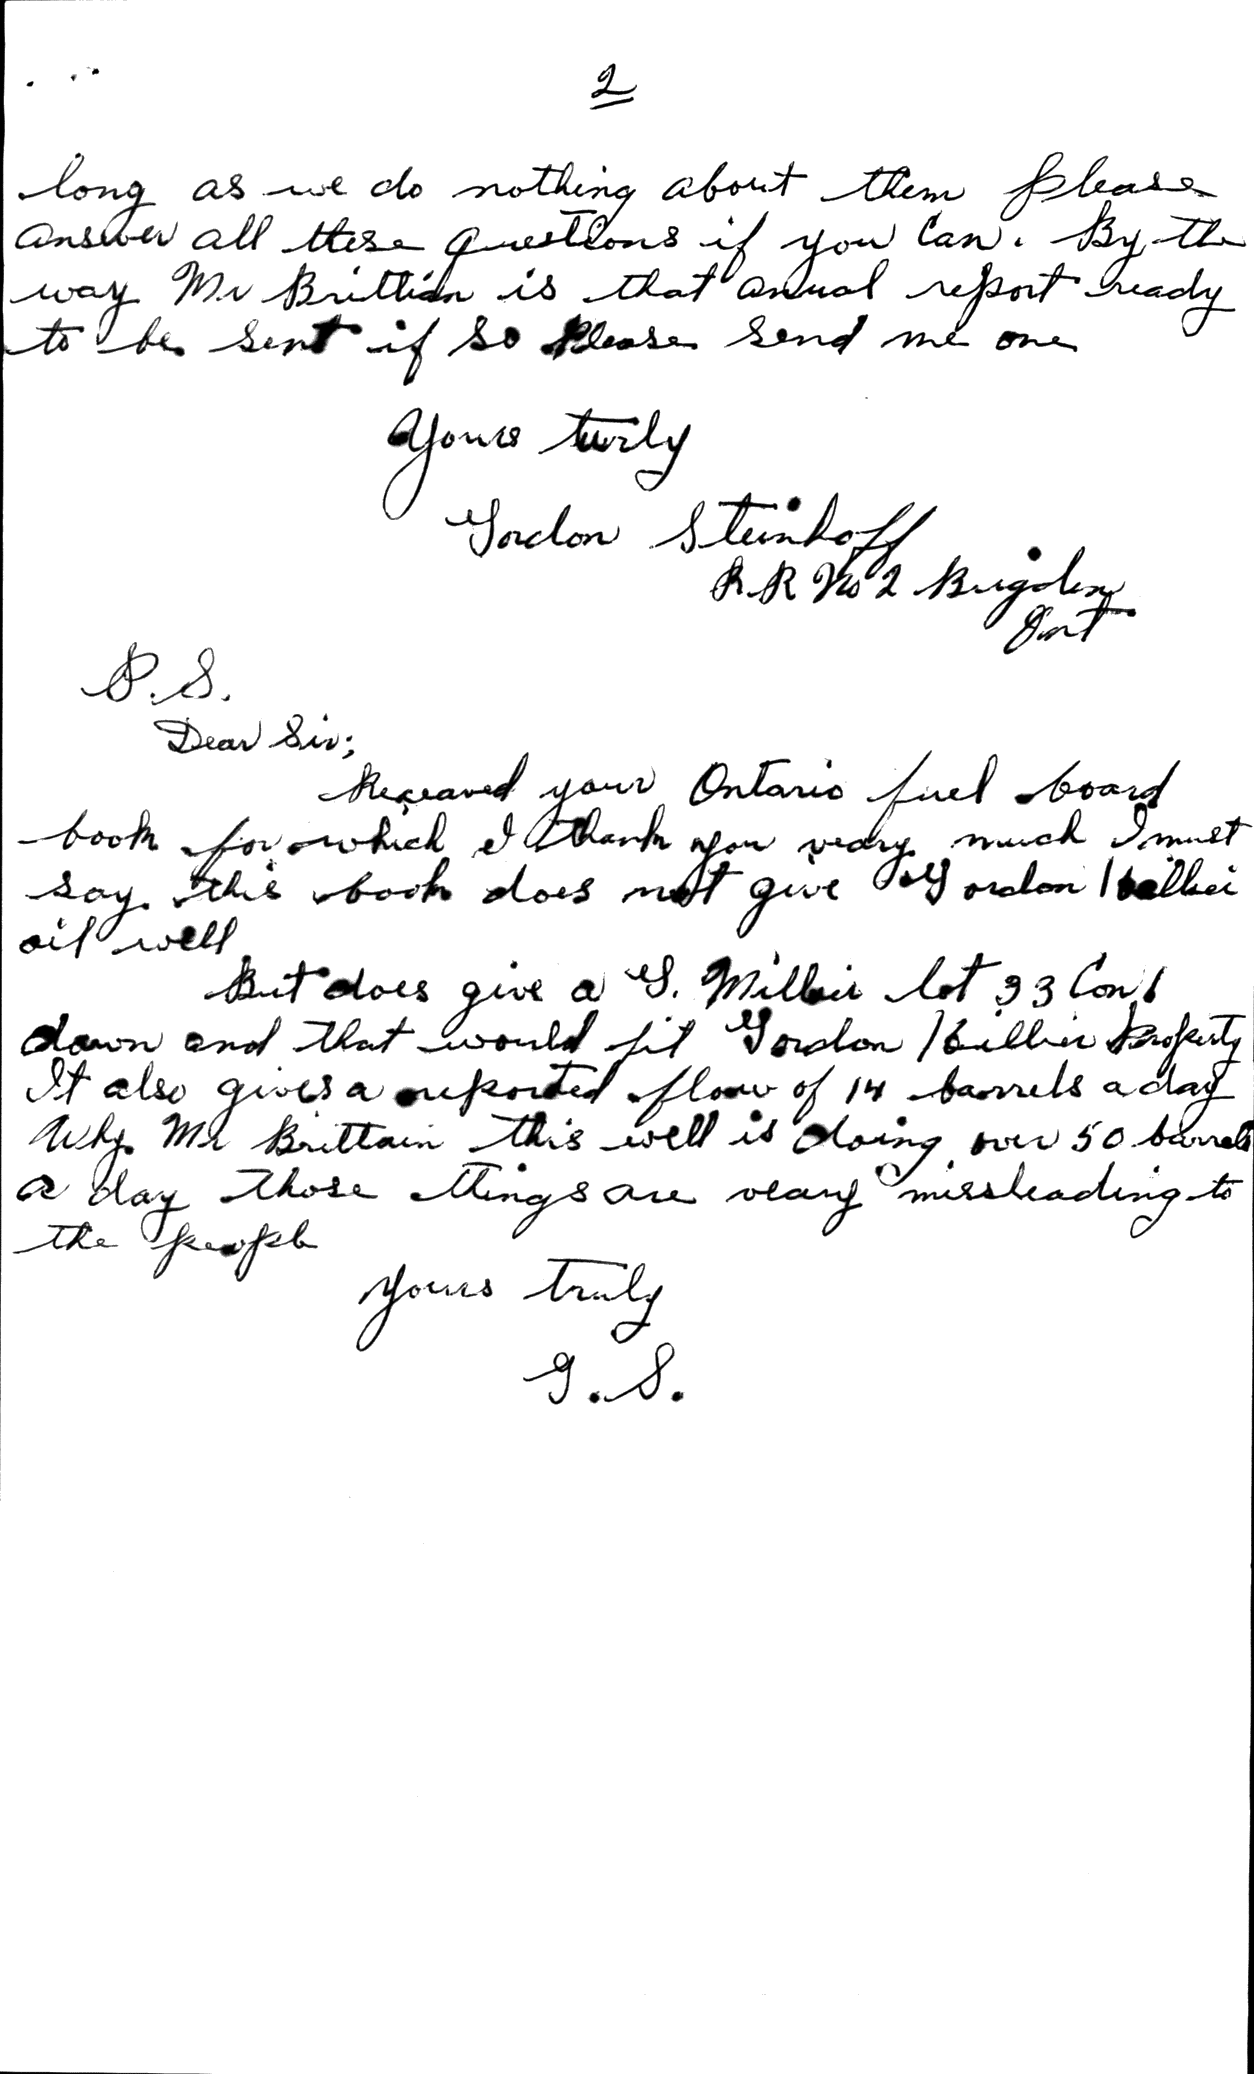 2
long as we do nothing about them please
answer all these questions if you can. By the
way Mr Brittian is that anual report ready
to be sent if so please send me one
Yours turly
Gordon Steinhoff
R.R No 2 Brigden
Ont
P.S.
Dear Sir;
Receaved your Ontario fuel board
book for which I thank you veary much I must
say this book does not give Gordon Hillier
oil well
But does give a G. Millier lot 33 Con 1
down and that would fit Gordon Hillier property
It also gives a reported flow of 14 barrels a day
Why Mr Brittain this well is doing over 50 barrels
a day those things are veary missleading to
the people
Yours truly
G.S.